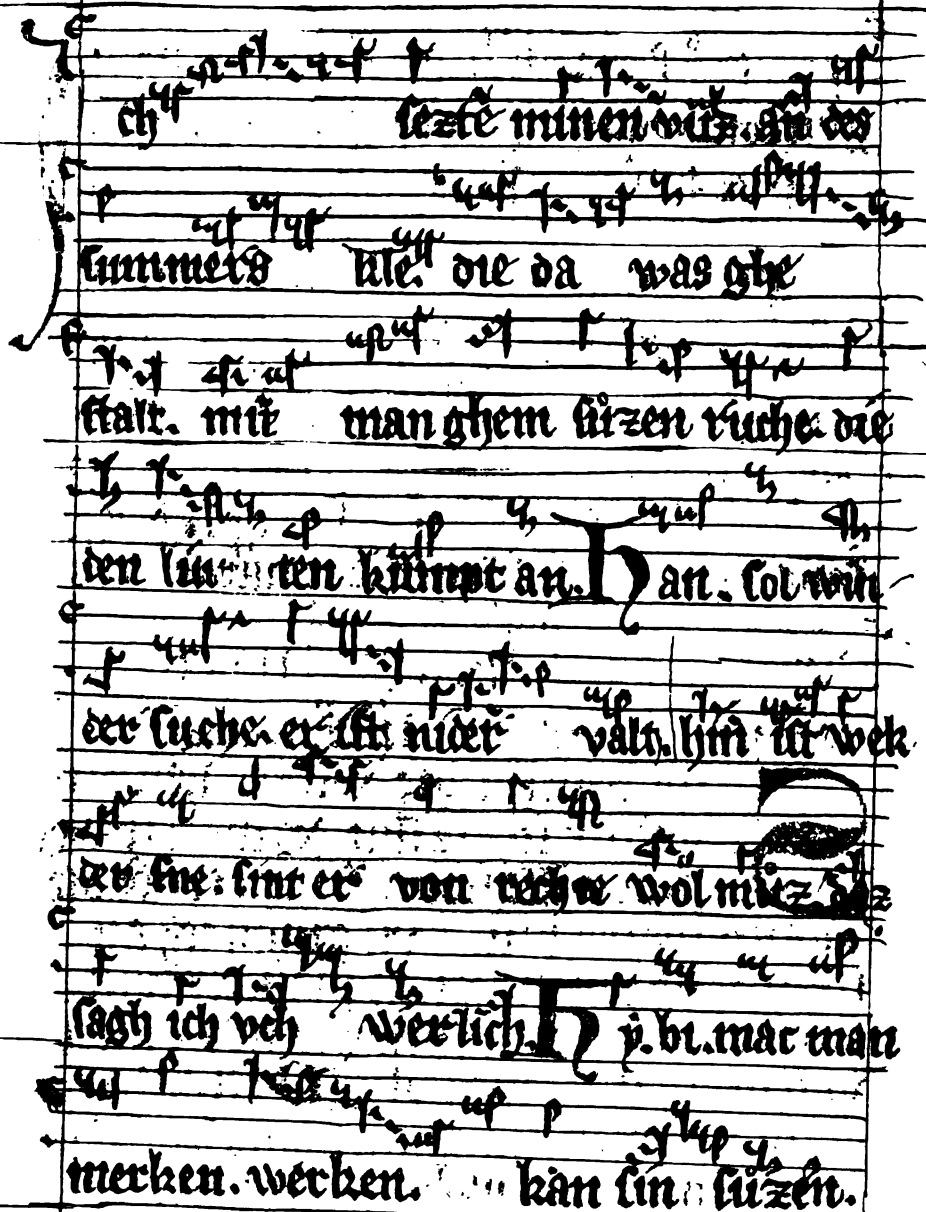 Ich sezte minen vuz. an des
summers kle. die da was ghe
stalt. mit manghem sůzen ruche. die
den kumpt an. Han. sol win
der suche. er ist nider valt. hin ist wek
der sne. sint er von rechte wol můz. daz
sagh ich vch werlich. Hy. bi. mac man
merken. werken. kan sin sůzen.